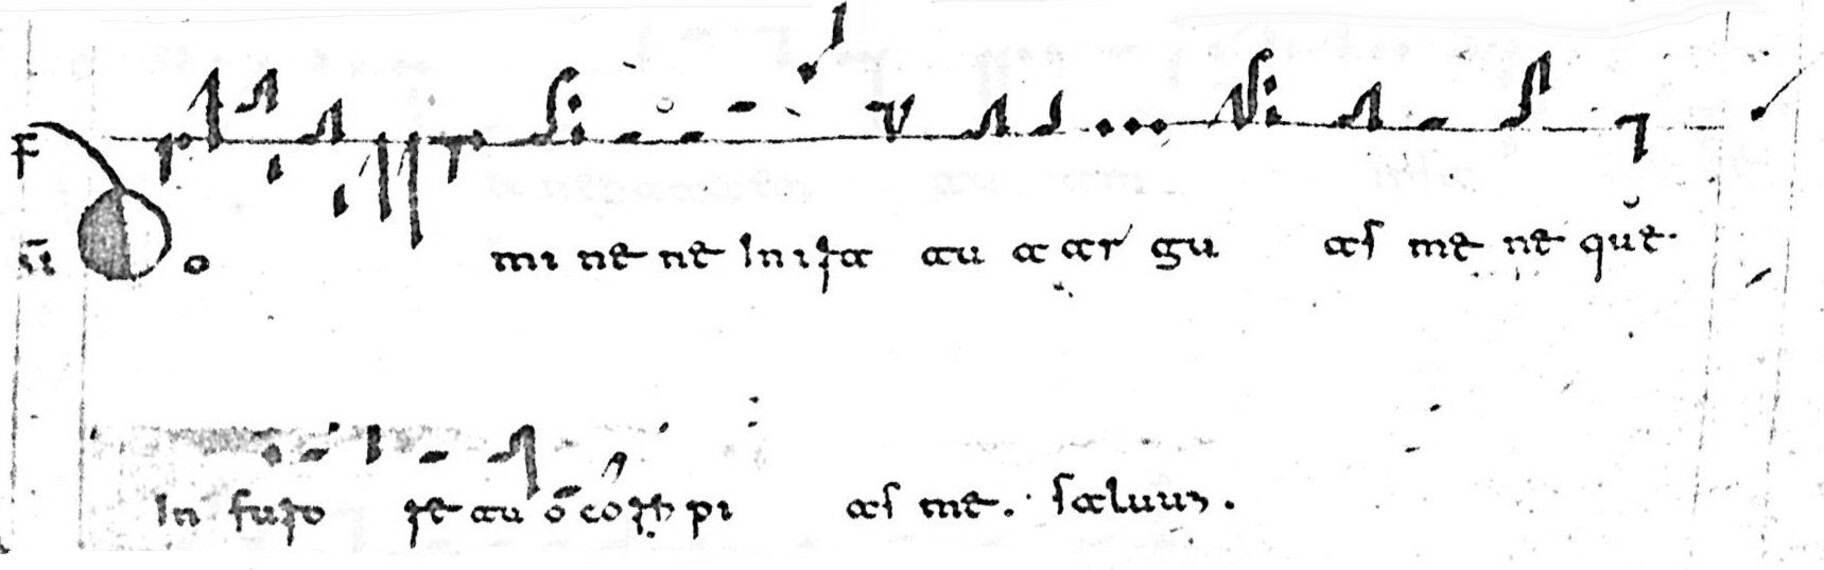 Do mi ne ne In ira tu a ar gu as me ne que
In furo re tu o cor ri pi as me. saluum.